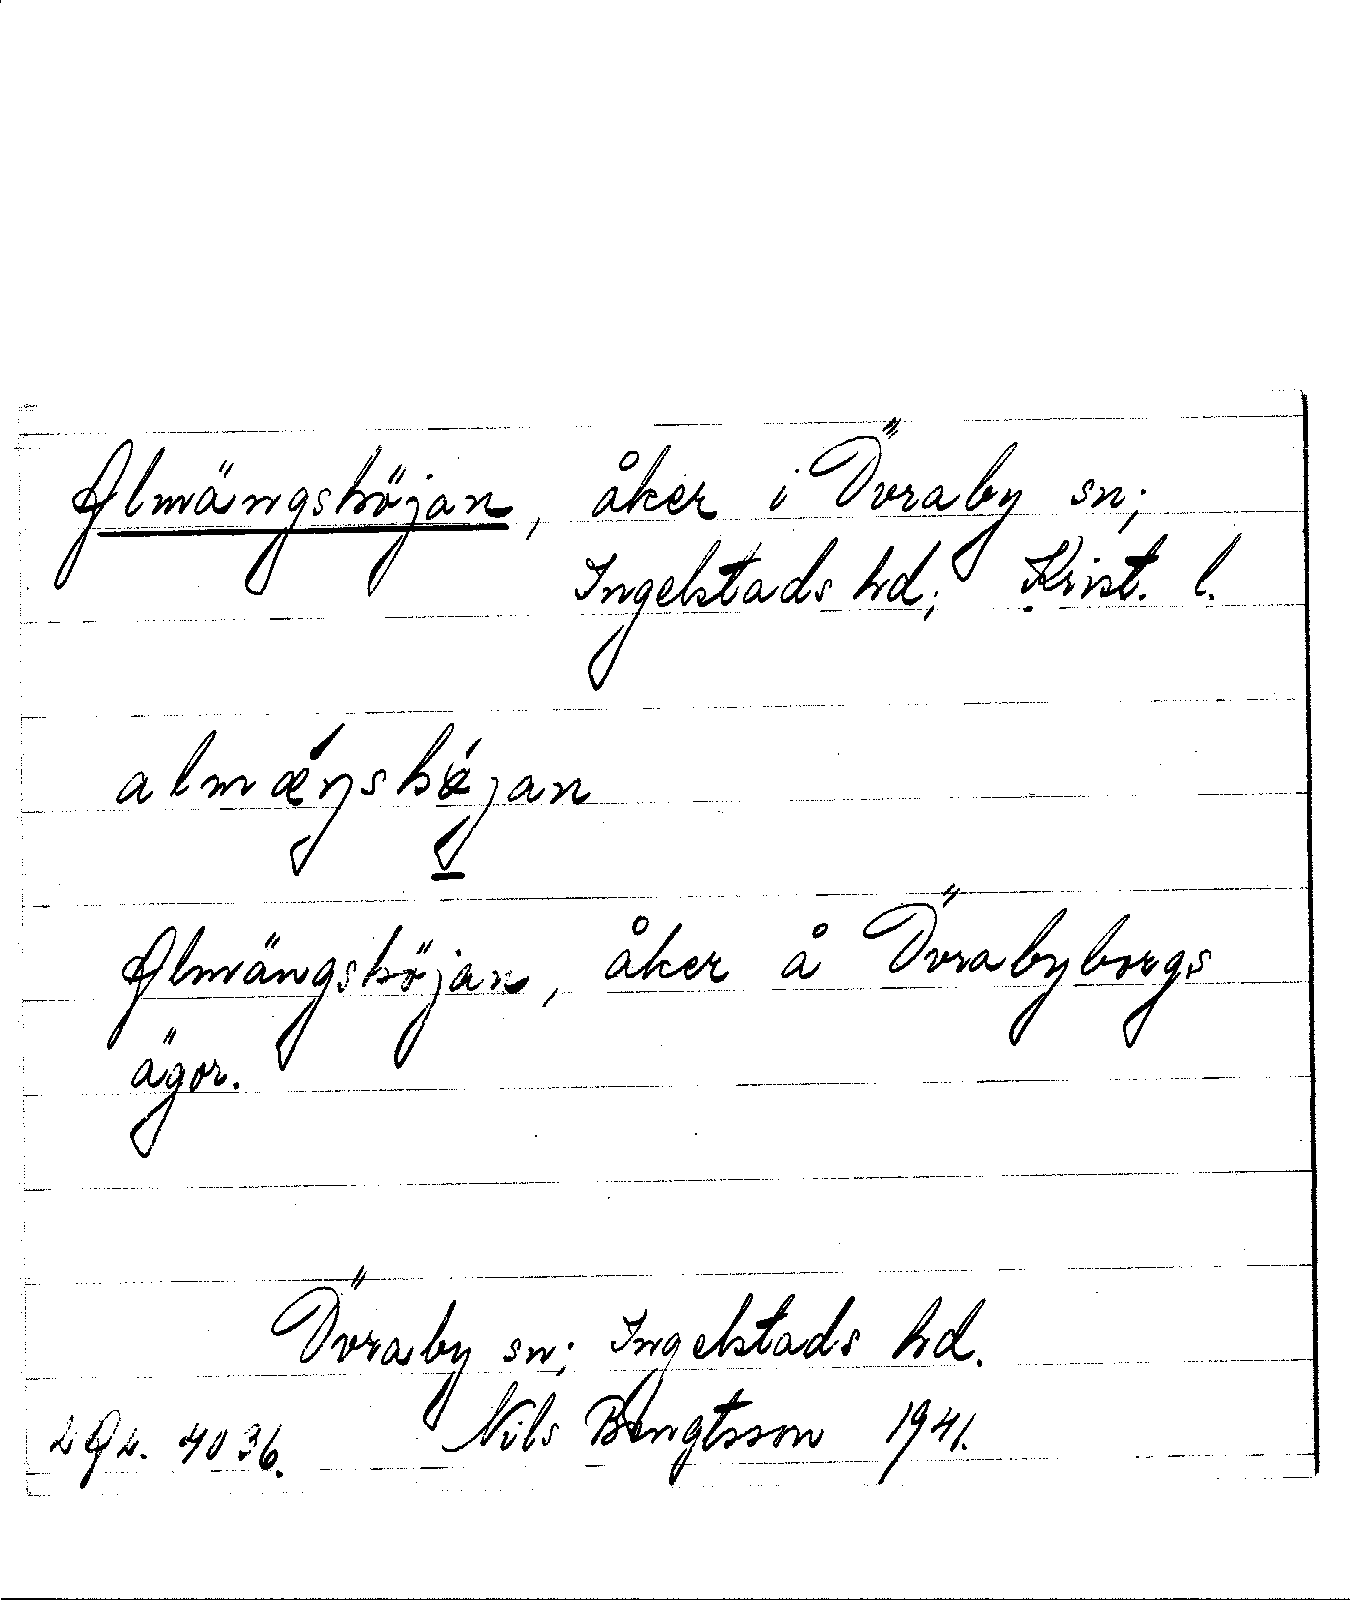 Almängshöjan, åker i Övraby sn;
Ingelstads hd; Krist. l.
almæŋshøjan
Almängshöjan, åker å Övrabyborgs
ägor.
Övraby sn; Ingelstads hd.
LAL. 4036. Nils Bengtsson 1941.